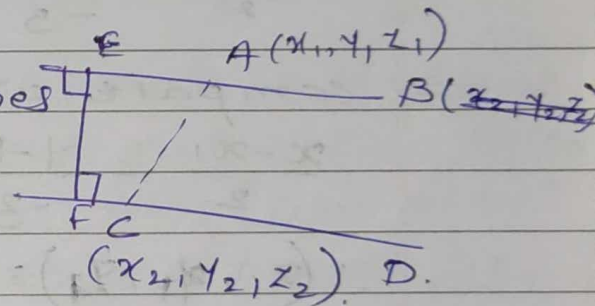 E
A (x₁, y₁ z₁)
B (x₂, y₂, z₂)
F C
(x₂, y₂, z₂) D.